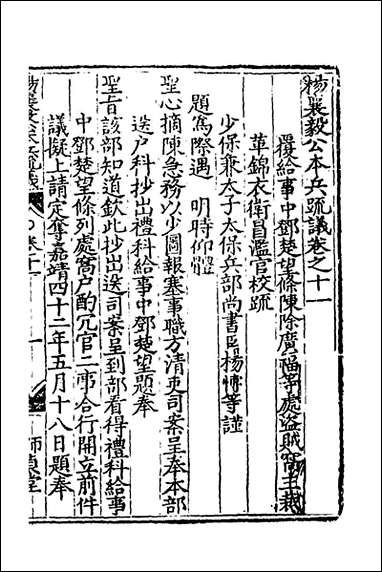 楊襄毅公本兵疏議卷之十一
覆給事中鄧楚望條陳除廣福等處盜賊窩主裁
革錦衣衛冒濫官校疏
少保兼太子太保兵部尚書臣楊博等謹
題爲際遇明時仰體
聖心摘陳急務以少圖報塞事職方清吏司案呈奉本部
送戶科抄出禮科給事中鄧楚望題奉
聖旨該部知道欽此抄出送司案呈到部看得禮科給事
中鄧楚望條列處窩户酌冗官二事合行開立前件
議擬上請定奪嘉靖四十二年五月十八日題奉
楊襄毅公本兵疏議
卷十一
一
師貞堂